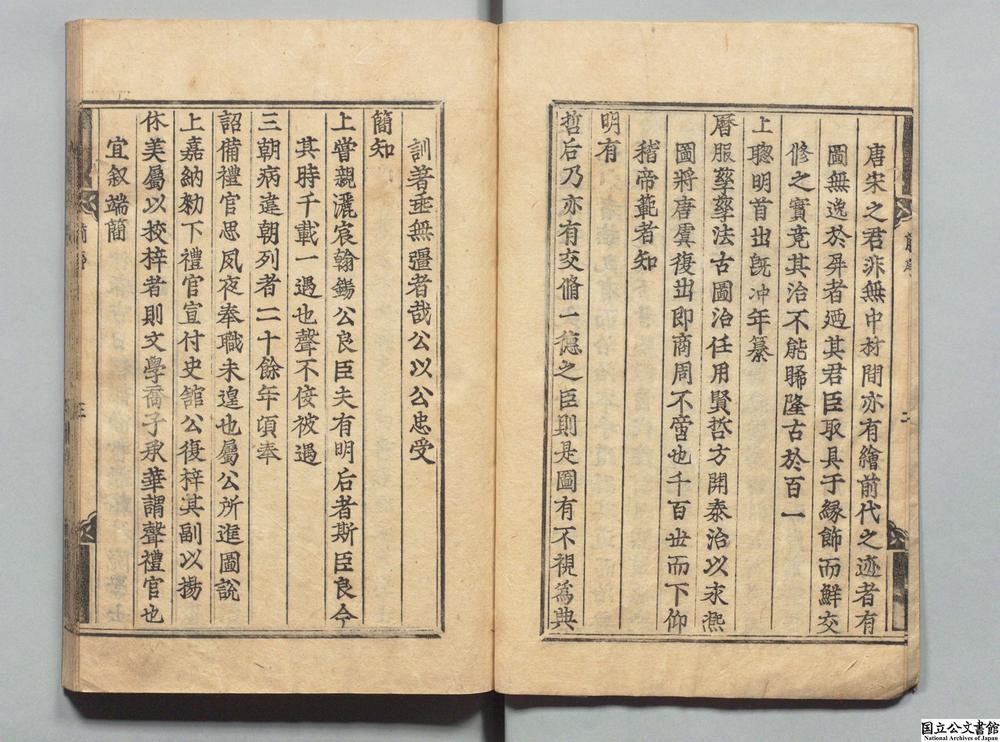 唐宋之君非無中材間亦有繪前代之迹者有
圖無逸於屏者廼其君臣取具于緣飾而鮮交
修之實竟其治不能睎隆古於百一
上聰明首出旣冲年纂
曆服孳孳法古圖治任用賢哲方開泰治以求熙
圖將唐虞復出即商周不啻也千百世而下仰
稽帝範者知
明有
哲后乃亦有交脩一德之臣則是圖有不視為典
訓著垂無彊者哉公以公忠受
簡知
上嘗親灑宸翰錫公良臣夫有明后者斯臣良今
其時千載一遇也聲不佞被遇
三朝病違朝列者二十餘年頃奉
詔備禮官思夙夜奉職未遑也屬公所進圖說
上嘉納勑下禮官宣付史舘公復梓其副以揚
休美屬以挍梓者則文學喬子承華謂聲禮官也
宜叙端簡
二
三
国立公文書館
National Archives of Japan